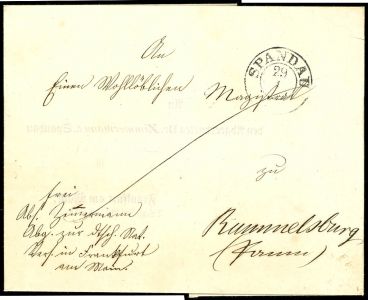 An
SPANDAU
29
Einen Wohllöblichen Magistrat
zu
frei
Abs. Zimmermann
Abg. zur dtsch. Nat.
Vers. in Frankfurt
am Main
Rummelsburg
(Pomm)